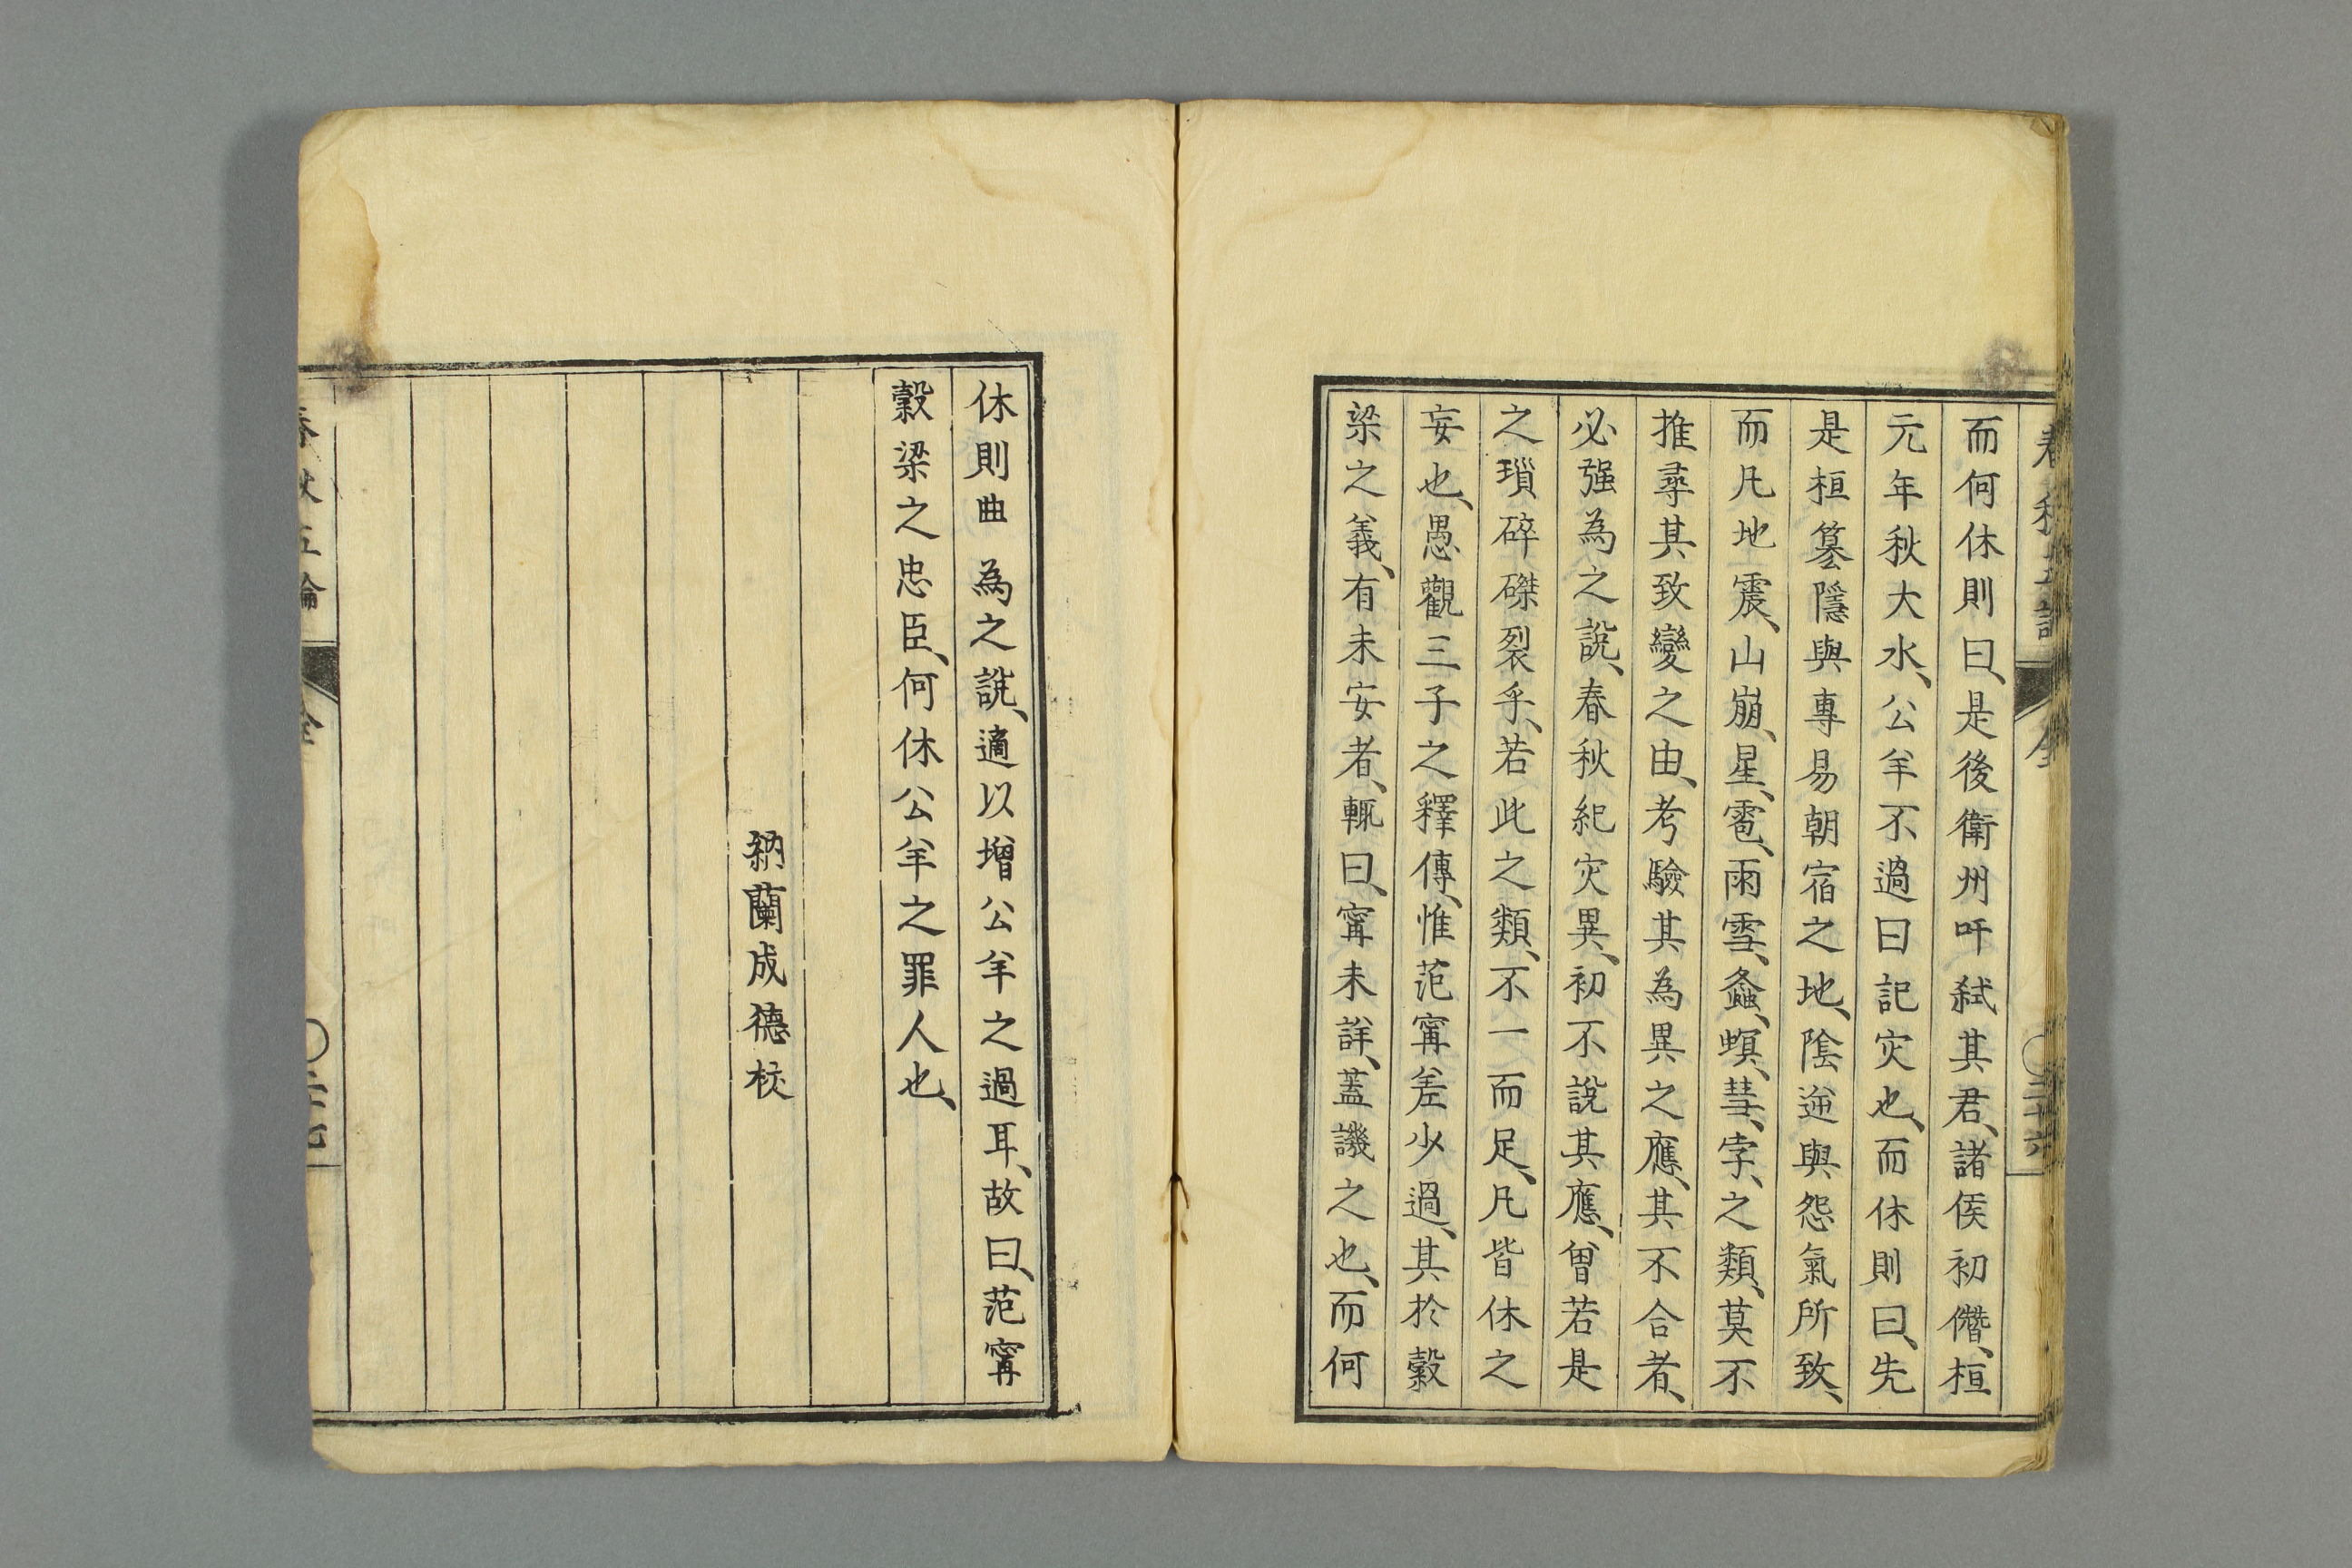 而何休則曰、是後衛州吁弑其君、諸侯初僭、桓
元年秋大水、公羊不過曰記灾也、而休則曰、先
是桓簒隱與專易朝宿之地、陰逆與怨氣所致、
而凡地震、山崩、星、雹、雨雪、螽、螟、彗、孛、之類、莫不
推尋其致變之由、考驗其為異之應、其不合者、
必强為之說、春秋紀灾異、初不說其應、曾若是
之瑣碎磔裂乎、若此之類、不一而足、凡皆休之
妄也、愚觀三子之釋傳、惟范甯差少過、其於穀
梁之義、有未安者、輒曰、甯未詳、蓋譏之也、而何
休則曲為之說、適以增公羊之過耳、故曰、范甯
穀梁之忠臣、何休公羊之罪人也、
納蘭成德校
春秋五論